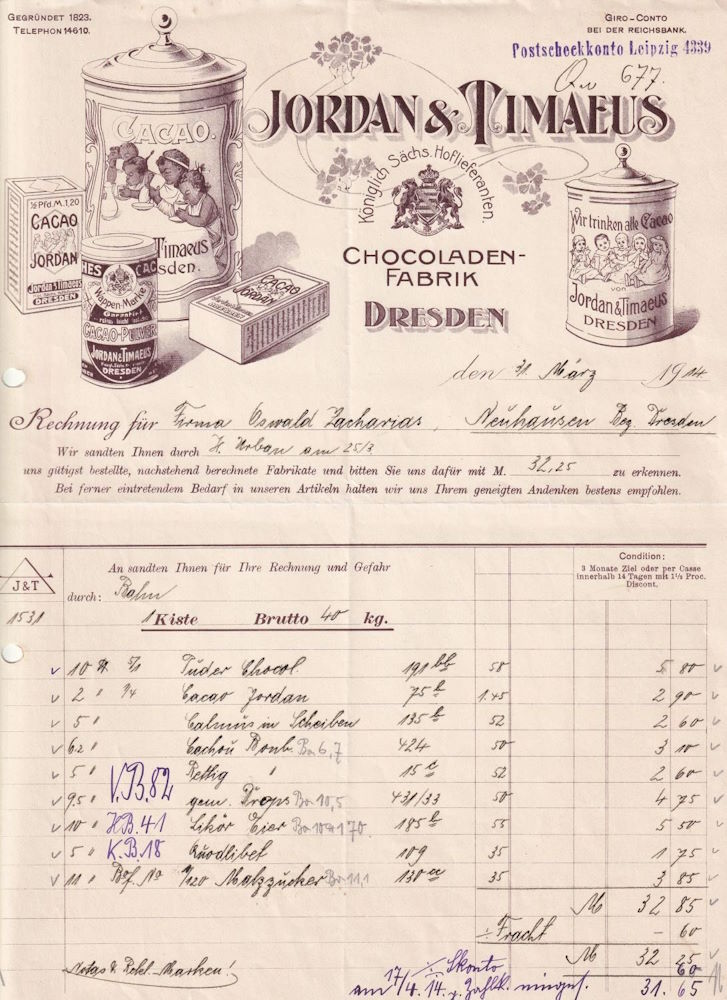 GEGRÜNDET 1823.
TELEPHON 14610.
GIRO-CONTO
BEI DER REICHSBANK.
Postscheckkonto Leipzig 4339
677.
JORDAN & TIMAEUS
Königlich Sächs. Hoflieferanten.
CHOCOLADEN-
FABRIK
DRESDEN
CACAO.
Timaeus
sden.
½ Pfd. M. 1,20
CACAO
JORDAN
Jordan & Timaeus
DRESDEN
Wappen-Marke
CACAO-PULVER
JORDAN & TIMAEUS
DRESDEN
CACAO
JORDAN
Wir trinken alle Cacao
von
Jordan & Timaeus
DRESDEN
den 31. März 1914
Rechnung für Firma Oswald Zacharias, Neuhausen Bez. Dresden
Wir sandten Ihnen durch H. Urban am 25/3.
uns gütigst bestellte, nachstehend berechnete Fabrikate und bitten Sie uns dafür mit M. 32,25 zu erkennen.
Bei ferner eintretendem Bedarf in unseren Artikeln halten wir uns Ihrem geneigten Andenken bestens empfohlen.
J & T
An sandten Ihnen für Ihre Rechnung und Gefahr
durch: Bahn
Condition:
3 Monate Ziel oder per Casse
innerhalb 14 Tagen mit 1½ Proc.
Discont.
1531 1 Kiste Brutto 40 kg.
10 ℔ 5/1 Puder Chocol. 191 bb 58 5 80
2 " 1/4 Cacao Jordan 75 b 1.45 2 90
5 " Calmus in Scheiben 135 b 52 2 60
6.2 " Cachou Bonb. 6,7 424 50 3 10
5 " Rettig " 15 c 52 2 60
V.B.82
9,5 " gem. Drops 10,5 431/33 50 4 75
10 " H.B.41 Likör Eier 185 b 55 5 50
5 " K.B.18 Quodlibet 109 35 1 75
11 " 1/120 Malzzucker 11,1 130 cc 35 3 85
M 32 85
÷ Fracht – 60
M 32 25
÷ Skonto 60
am 17/4. 14. 31.65